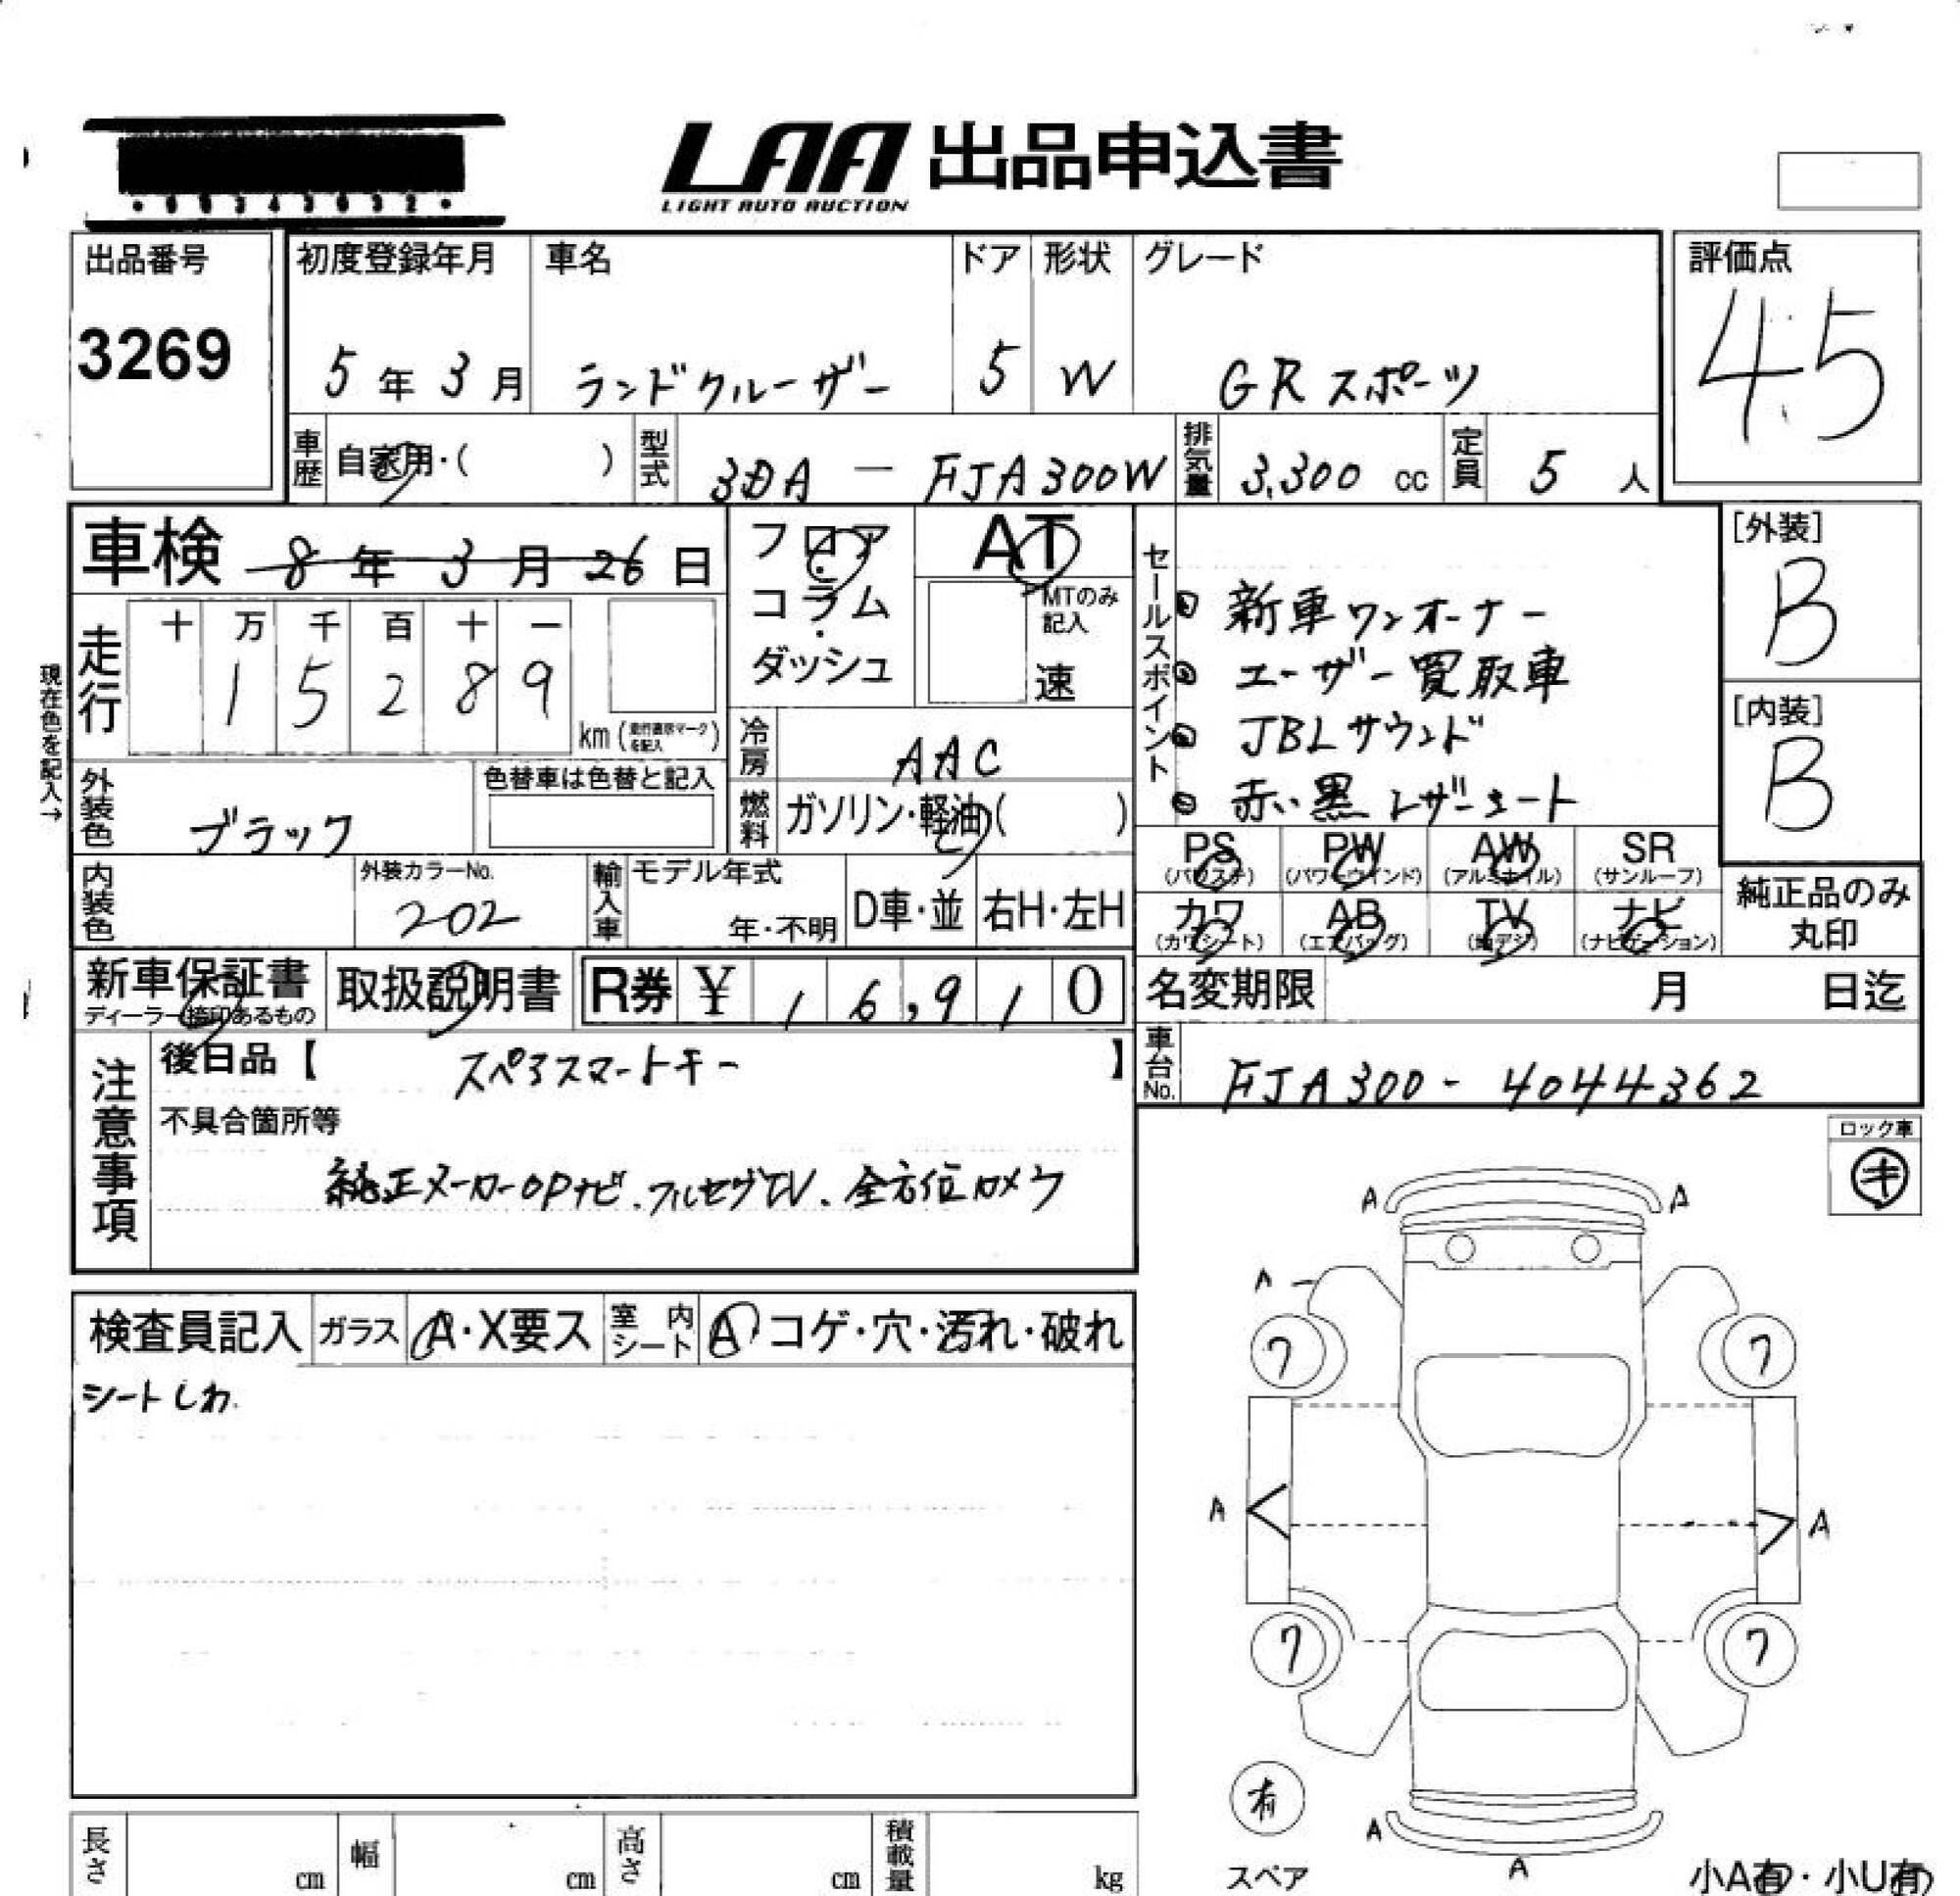 LAA 出品申込書
LIGHT AUTO AUCTION
出品番号
3269
初度登録年月
5年3月
車名
ランドクルーザー
ドア
5
形状
W
グレード
GRスポーツ
評価点
4.5
車歴 自家用・( )
型式 3DA - FJA300W
排気量 3,300 cc
定員 5 人
車検 8年3月26日
フロア・コラム・ダッシュ
AT
MTのみ記入
速
セールスポイント
新車ワンオーナー
ユーザー買取車
JBLサウンド
赤い黒レザーシート
[外装]
B
[内装]
B
現在色を記入→
走行
十 万 千 百 十 一
1 5 2 8 9
km
冷房 AAC
燃料 ガソリン・軽油( )
外装色 ブラック
色替車は色替と記入
内装色
外装カラーNo.
202
輸入車
モデル年式
年・不明
D車・並
右H・左H
PS (パワステ)
PW (パワーウインド)
AW (アルミホイル)
SR (サンルーフ)
カワ (カワシート)
AB (エアバッグ)
TV (地デジ)
ナビ (ナビゲーション)
純正品のみ丸印
新車保証書
ディーラー捺印あるもの
取扱説明書
R券 ¥ 16,910
名変期限 月 日迄
車台No. FJA300-4044362
注意事項
後日品【 スペアスマートキー 】
不具合箇所等
純正メーカーOPナビ、フルセグTV、全方位カメラ
ロック車
キ
検査員記入
ガラス A・X要ス
室内シート A コゲ・穴・汚れ・破れ
シートしわ
A A
A
7 7
A A
7 7
有
スペア
A
A
小A有・小U有
長さ cm
幅 cm
高さ cm
積載量 kg